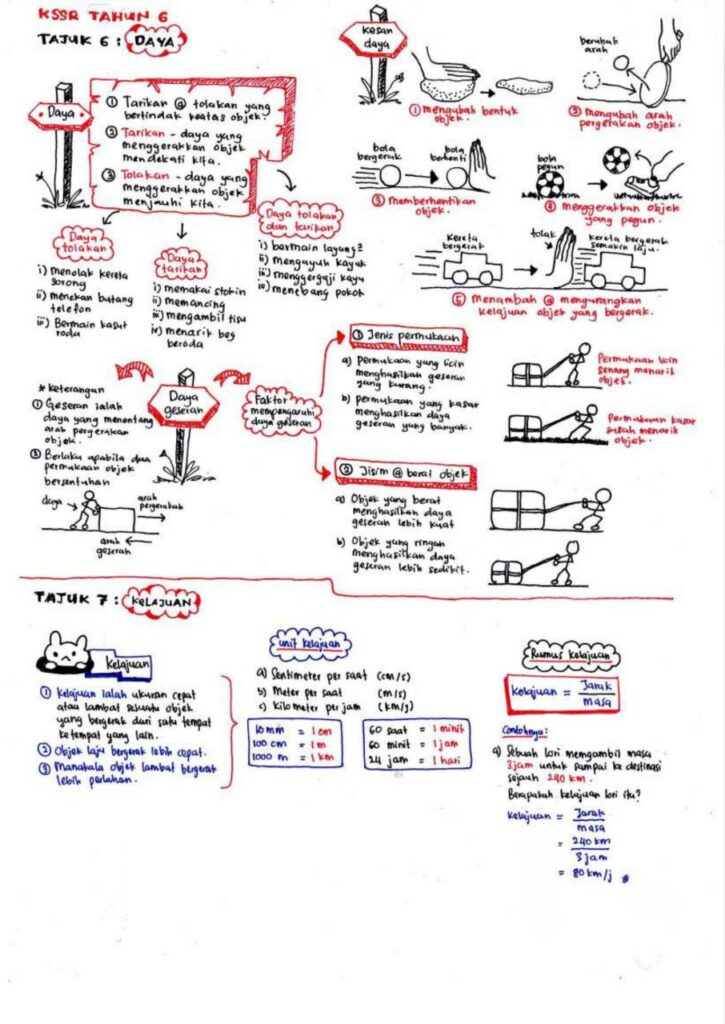 KSSR TAHUN 6
TAJUK 6 : DAYA
Daya
① Tarikan @ tolakan yang
bertindak keatas objek.
② Tarikan - daya yang
menggerakkan objek
mendekati kita.
③ Tolakan - daya yang
menggerakkan objek
menjauhi kita.
Daya
tolakan
i) menolak kereta
sorong
ii) menekan butang
telefon
iii) Bermain kasut
roda
Daya
tarikan
i) memakai stokin
ii) memancing
iii) mengambil tisu
iv) menarik beg
beroda
Daya tolakan
dan tarikan
i) bermain layang²
ii) mengayuh kayak
iii) menggergaji kayu
iv) menebang pokok
kesan
daya
① mengubah bentuk
objek.
berubah
arah
② mengubah arah
pergerakan objek.
bola
bergerak
bola
berhenti
③ memberhentikan
objek.
bola
pegun
④ menggerakkan objek
yang pegun.
kereta
bergerak
tolak
kereta bergerak
semakin laju.
⑤ Menambah @ mengurangkan
kelajuan objek yang bergerak.
* Keterangan
① Geseran ialah
daya yang menentang
arah pergerakan
objek.
② Berlaku apabila dua
permukaan objek
bersentuhan
daya
arah
pergerakan
arah
geseran
Daya
geseran
Faktor
mempengaruhi
daya geseran
① Jenis permukaan
a) permukaan yang licin
menghasilkan geseran
yang kurang.
b) permukaan yang kasar
menghasilkan daya
geseran yang banyak.
Permukaan licin
senang menarik
objek.
Permukaan kasar
susah menarik
objek.
② Jisim @ berat objek
a) Objek yang berat
menghasilkan daya
geseran lebih kuat
b) Objek yang ringan
menghasilkan daya
geseran lebih sedikit.
TAJUK 7 : KELAJUAN
Kelajuan
① Kelajuan ialah ukuran cepat
atau lambat sesuatu objek
yang bergerak dari satu tempat
ketempat yang lain.
② Objek laju bergerak lebih cepat.
③ Manakala objek lambat bergerak
lebih perlahan.
unit kelajuan
a) Sentimeter per saat (cm/s)
b) Meter per saat (m/s)
c) Kilometer per jam (km/j)
10 mm = 1 cm
100 cm = 1 m
1000 m = 1 km
60 saat = 1 minit
60 minit = 1 jam
24 jam = 1 hari
Rumus kelajuan
Kelajuan = Jarak
masa
Contohnya:
a) Sebuah lori mengambil masa
3 jam untuk sampai ke destinasi
sejauh 240 km.
Berapakah kelajuan lori itu?
Kelajuan = Jarak
masa
= 240 km
3 jam
= 80 km/j